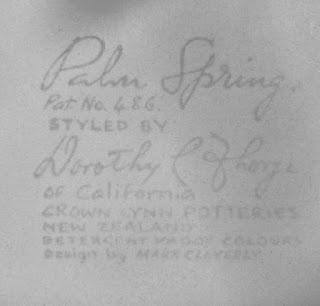 Palm Spring.
Pat. No. 486.
STYLED BY
Dorothy C Thorpe
OF California
CROWN LYNN POTTERIES
NEW ZEALAND
DETERGENT PROOF COLOURS
Design by MARK CLEVERLY